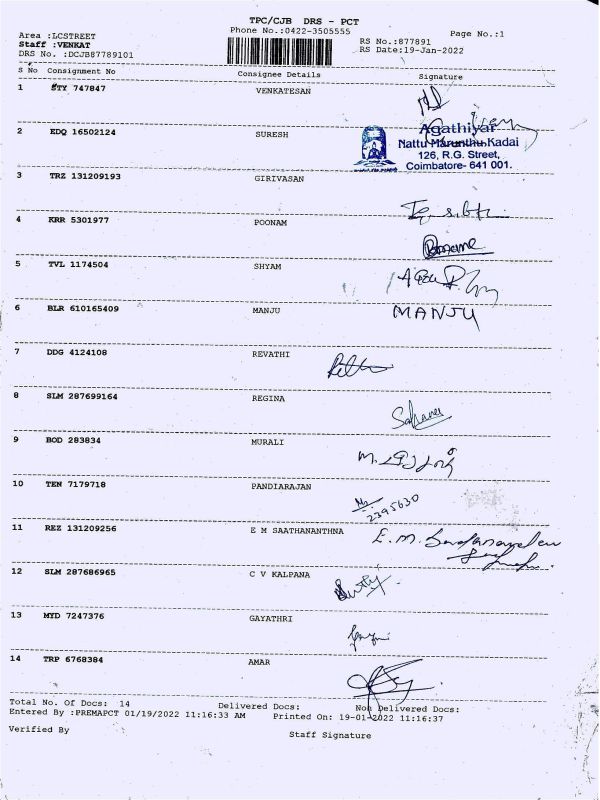 TPC/CJB DRS - PCT
Phone No.:0422-3505555
Page No.:1
Area :LCSTREET
Staff :VENKAT
DRS No. :DCJB87789101
RS No.:877891
RS Date:19-Jan-2022
S No Consignment No Consignee Details Signature
1 STY 747847 VENKATESAN
2 EDQ 16502124 SURESH
Agathiyar
Nattu Marunthu Kadai
126, R.G. Street,
Coimbatore- 641 001.
3 TRZ 131209193 GIRIVASAN
4 KRR 5301977 POONAM
5 TVL 1174504 SHYAM
6 BLR 610165409 MANJU MANJU
7 DDG 4124108 REVATHI
8 SLM 287699164 REGINA
9 BOD 283834 MURALI
10 TEN 7179718 PANDIARAJAN
2395630
11 REZ 131209256 E M SAATHANANTHNA E.M.
12 SLM 287686965 C V KALPANA
13 MYD 7247376 GAYATHRI
14 TRP 6768384 AMAR
Total No. Of Docs: 14 Delivered Docs: Non Delivered Docs:
Entered By :PREMAPCT 01/19/2022 11:16:33 AM Printed On: 19-01-2022 11:16:37
Verified By Staff Signature